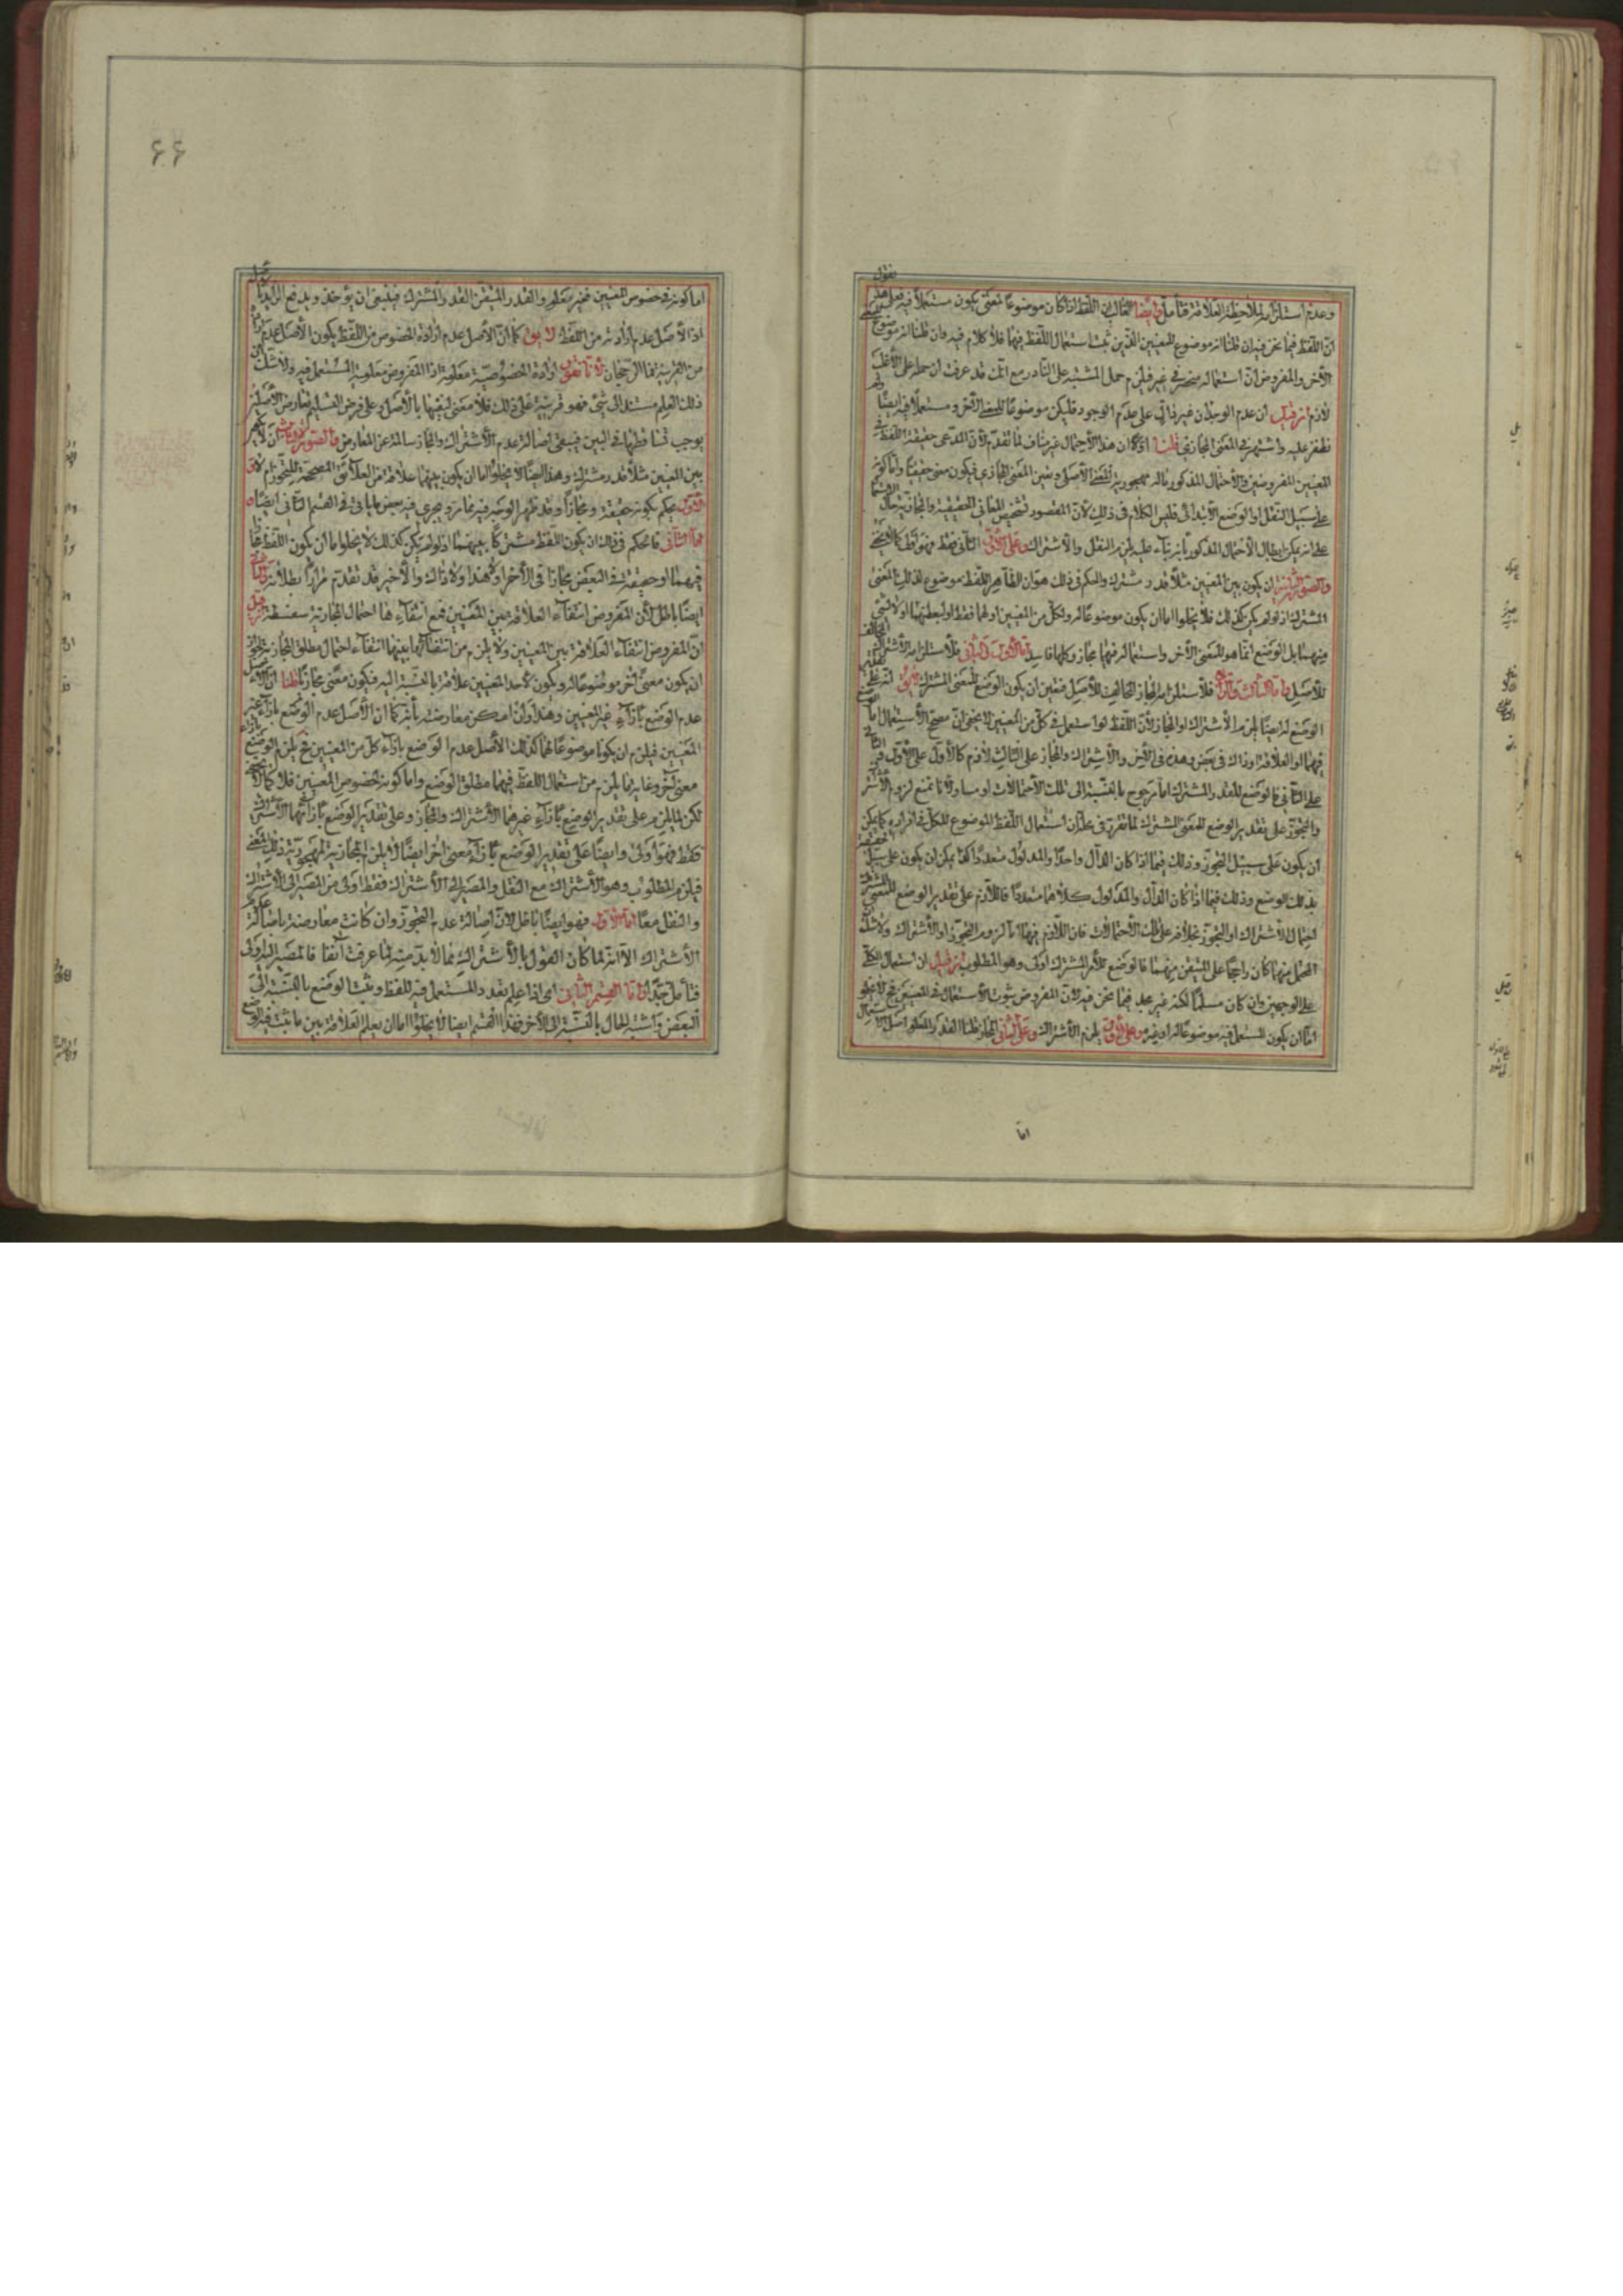 وعدم استلزامه لملاحظة العلاقة فتأمل وايضا الغالب ان اللفظ اذا كان موضوعا لمعنى يكون مستعملا فيه
ان اللفظ فيما نحن فيه ان قلنا انه موضوع للمعنيين الذين ثبت استعمال اللفظ فيهما فلا كلام فيه وان قلنا انه موضوع
الآخر والمفروض ان استعماله منحصر في غيره فيلزم حمل المشتبه على النادر مع انك قد عرفت ان حمله على الاغلب
لازم فان قيل ان عدم الوجدان غير دال على عدم الوجود فليكن موضوعا للمعنى الآخر ومستعملا فيه ايضا
نظفر عليه واشتهر في المعنى المجازي قلنا اولا ان هذا الاحتمال غير مناف لما تقدم لان المدعى حقيقة اللفظ في
المعنيين المفروضين والاحتمال المذكور مآله مهجورية المعنى الاصلي وتعين المعنى المجازي فيكون معنى حقيقيا واما كونه
على سبيل النقل او الوضع الابتدائي فليس الكلام في ذلك لان المقصود تشخيص المعاني الحقيقية والمجازية حال
على انه يمكن ابطال الاحتمال المذكور بانه بناء عليه يلزم النقل والاشتراك وعلى الاول الثاني فقط فهو اولى كما لا يخفى
والصورة الثانية ان يكون بين المعنيين مثلا قدر مشترك والحكم في ذلك هو ان الظاهر اللفظ موضوع لذلك المعنى
المشترك اذ لو لم يكن كذلك فلا يخلوا اما ان يكون موضوعا له ولكل من المعنيين اولهما فقط او لبعضهما او لا شئ
منهما بل الوضع انما هو للمعنى الآخر واستعماله فيهما مجاز وكلها فاسد اما الاول والثاني فلاستلزامه الاشتراك المخالف
للاصل واما الثالث والرابع فلاستلزامه المجاز المخالف للاصل فتعين ان يكون الوضع للمعنى المشترك
الوضع له ايضا يلزم الاشتراك او المجاز لان اللفظ لو استعمل في كل من المعنيين لا يخفى ان مصحح الاستعمال اما
فيهما او العلاقة او ذاك في بعض وهذه في الآخر والاشتراك والمجاز على الثالث لازم كالاول على الاول
على الثاني فالوضع للقدر المشترك اما مرجوح بالنسبة الى تلك الاحتمالات او مساو لانا نمنع لزوم
والتجوز على تقدير الوضع للمعنى المشترك لما تقرر في محله ان استعمال اللفظ الموضوع للكلي في افراده كما يمكن
ان يكون على سبيل التجوز وذلك فيما اذا كان الدال واحدا والمدلول متعددا كذا يمكن ان يكون على سبيل
بذلك الوضع وذلك فيما اذا كان الدال والمدلول كلاهما متعددا فاللازم على تقدير الوضع للمعنى
احتمال الاشتراك او التجوز بخلافه على تلك الاحتمالات فان اللازم فيها اما لزوم التجوز او الاشتراك ولا شك
المحتمل منهما كان راجحا على المتيقن منهما فالوضع للامر المشترك اولى وهو المطلوب فان قيل ان استعمال الكلي
على الوجهين وان كان مسلما لكنه غير مجد فيما نحن فيه لان المفروض ثبوت الاستعمال في المعنيين فح لا يخلو
اما ان يكون المستعمل فيه موضوعا له او غيره وعلى الاول يلزم الاشتراك وعلى الثاني المجاز قلنا القدر المعلوم اصل الاستعمال
اما
۶۶
اما كونه في خصوص المعنيين فغير معلوم والقدر المتيقن القدر المشترك فينبغي ان يؤخذ ويدفع الزايد
اذ الاصل عدم ارادته من اللفظ لا يق كما ان الاصل عدم ارادة الخصوص من اللفظ يكون الاصل عدم
من القرينة فما الرجحان لانا نقول ارادة الخصوصية معلومة اذ المفروض معلومية المستعمل فيه ولا شك ان
ذلك العلم مستند الى شئ فهو قرينة على ذلك فلا معنى لنفيها بالاصل وعلى فرض التسليم تعارض الاصلين
يوجب تساقطهما في البين فيبقى اصالة عدم الاشتراك والمجاز سالمة عن المعارض والصورة الثالثة ان لا يكون
بين المعنيين مثلا قدر مشترك وهذا ايضا لا يخلوا اما ان يكون بينهما علاقة من العلائق المصححة للتجوز ام لا
الاول يحكم بكونه حقيقة ومجازا وقد ظهر الوجه فيه فيما مر ويجري فيه بعض ما ياتي في القسم الثاني ايضا
اما الثاني فالحكم في ذلك ان يكون اللفظ مشتركا بينهما اذ لو لم يكن كذلك لا يخلوا اما ان يكون اللفظ مجازا
فيهما او حقيقة في البعض مجازا في الآخر او لا هذا ولا ذاك والاخير قد تقدم مرارا بطلانه
ايضا باطل لان المفروض انتفاء العلاقة بين المعنيين فمع انتفائها احتمال المجازية سفسطة
ان المفروض انتفاء العلاقة بين المعنيين ولا يلزم من انتفائها بينهما انتفاء احتمال مطلق المجازية
ان يكون معنى آخر موضوعا له ويكون لاحد المعنيين علاقة بالنسبة اليه فيكون معنى مجازيا قلنا ان الاصل
عدم الوضع بازاء غير المعنيين وهذا وان امكن معارضته بانه كما ان الاصل عدم الوضع بازاء غير
المعنيين فيلزم ان يكونا موضوعا لهما كذلك الاصل عدم الوضع بازاء كل من المعنيين فح يلزم الوضع
معنى آخر وغاية ما يلزم من استعمال اللفظ فيهما مطلق الوضع واما كونه لخصوص المعنيين فلا كما لا يخفى
لكن لما يلزم على تقدير الوضع بازاء غيرهما الاشتراك والمجاز وعلى تقدير الوضع بازائهما الاشتراك
فقط فهو اولى وايضا على تقدير الوضع بازاء معنى آخر ايضا لا يلزم المجازية لمهجورية ذلك المعنى
فيلزم المطلوب وهو الاشتراك مع النقل والمصير الى الاشتراك فقط اولى من المصير الى الاشتراك
والنقل معا اما الاول فهو ايضا باطل لان اصالة عدم التجوز وان كانت معارضة باصالة عدم
الاشتراك الا انه لما كان القول بالاشتراك مما لا بد منه لما عرفت آنفا فالمصير اليه اولى
فتأمل جدا واما القسم الثاني اى اذا علم تعدد المستعمل فيه للفظ وثبت الوضع بالنسبة الى
البعض واشتبه الحال بالنسبة الى الآخر فهذا القسم ايضا لا يخلوا اما ان يعلم العلاقة بين ما ثبت فيه الوضع